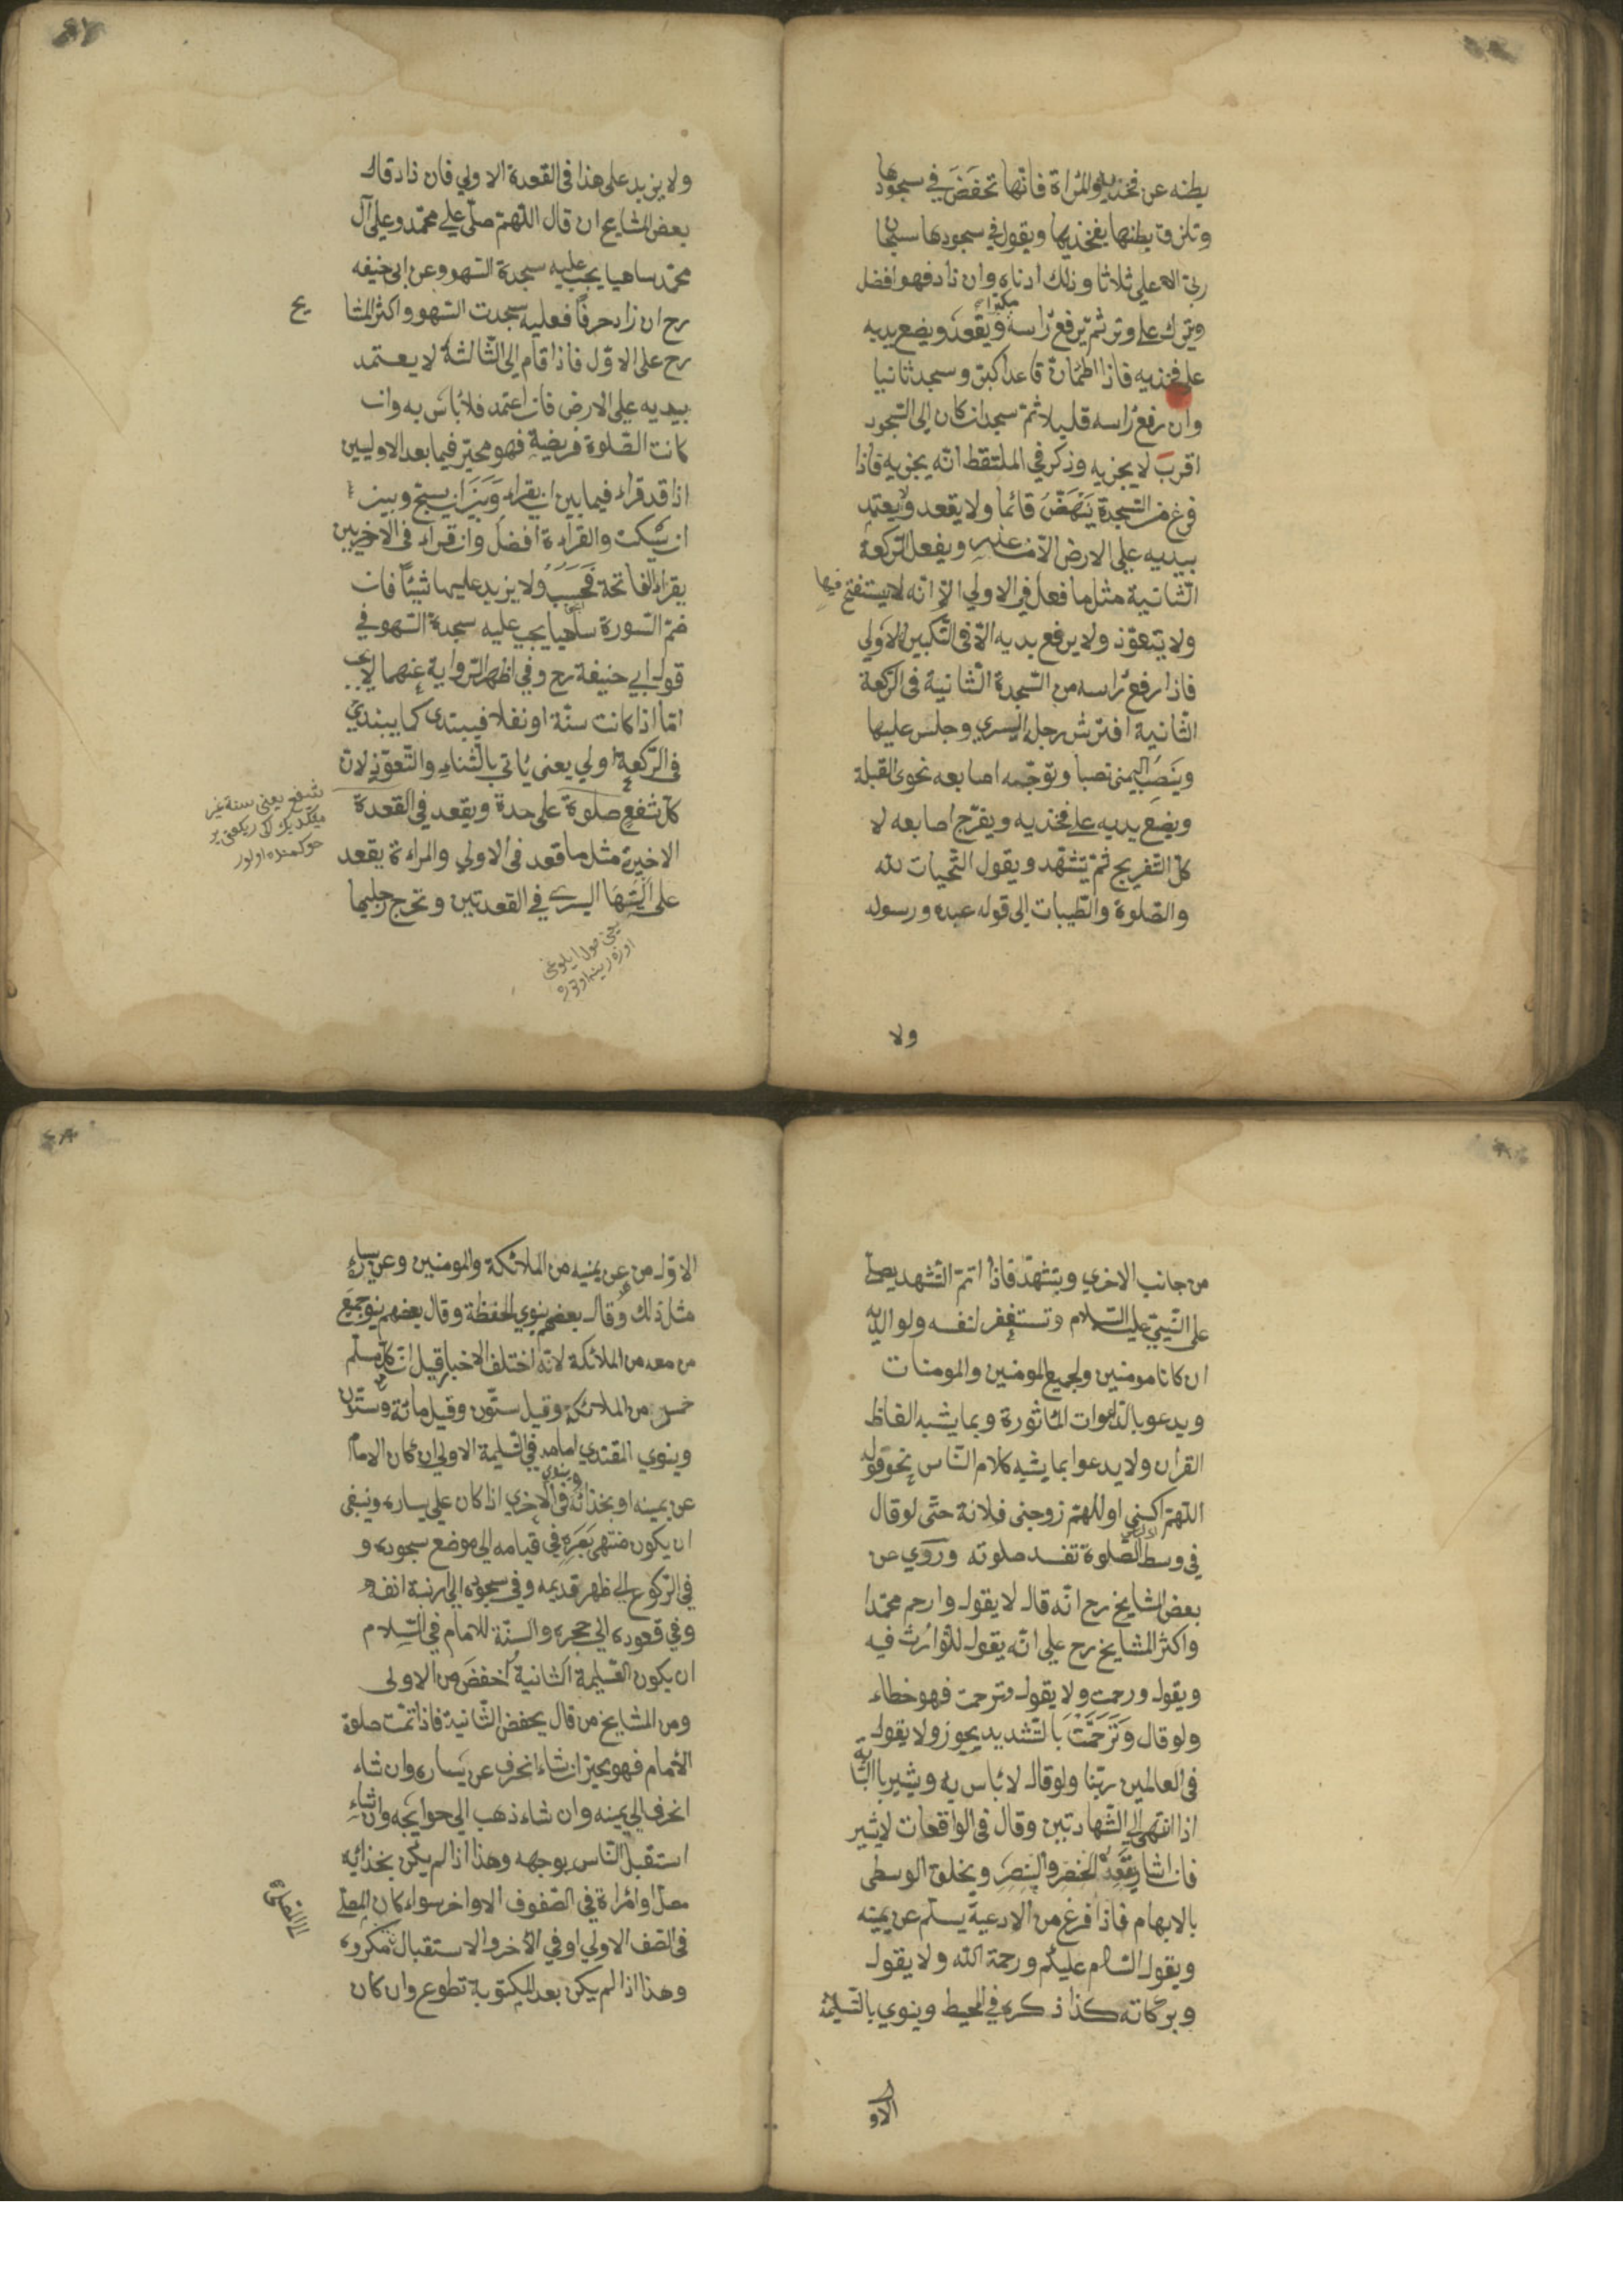 بطنه عن فخذيه والمراة فانها تخفض في سجودها
وتلزق بطنها بفخذيها ويقول في سجودها سبحان
ربى الاعلى ثلاثا وذلك ادناه وان زاد فهو افضل
ويترك على وتر ثم يرفع راسه مكبرا ويقعد ويضع يديه
على فخذيه فاذا اطمان قاعدا كبر وسجد ثانيا
وان رفع راسه قليلا ثم سجد ان كان الى السجود
اقرب لا يجزيه وذكر في الملتقط انه يجزيه فاذا
فرغ من السجدة ينهض قائما ولا يقعد ولا يعتمد
بيديه على الارض الا من عذر ويفعل الركعة
الثانية مثل ما فعل في الاولي الا انه لا يستفتح فيها
ولا يتعوذ ولا يرفع يديه الا فى التكبير الاولي
فاذا رفع راسه من السجدة الثانية فى الركعة
الثانية افترش رجله اليسري وجلس عليها
وينصب اليمنى نصبا وتوجه اصابعه نحو القبلة
ويضع يديه على فخذيه ويفرج اصابعه لا
كل التفريج ثم يتشهد ويقول التحيات لله
والصلوة والطيبات الى قوله عبده ورسوله
ولا
ولا يزيد على هذا فى القعدة الاولي فان زاد قال
بعض المشايخ ان قال اللهم صلى على محمد وعلى آل
محمد ساهيا يجب عليه سجدة السهو وعن ابى حنيفه
رح ان زاد حرفا فعليه سجدت السهو واكثر المشا
يح
رح على الاول فاذا قام الى الثالثة لا يعتمد
بيديه على الارض فان اعتمد فلا باس به وان
كانت الصلوة فريضة فهو مخير فيما بعد الاوليين
اذا قد قراء فيما بين ان يقراء وبين ان يسبح وبين
ان يسكت والقراءة افضل وان قراء فى الاخريين
يقراء الفاتحة فحسب ولا يزيد عليها شيئا فان
ضم السورة ساهيا يجب عليه سجدة السهو في
قول ابي حنيفة رح وفي اظهر الرواية عنهما لا يجب
اما اذا كانت سنة او نفلا فيبتدى كما يبتدي
فى الركعة اولي يعنى ياتي بالثناء والتعوذ لان
كل شفع صلوة على حدة ويقعد في القعدة
الاخيرة مثل ما قعد فى الاولي والمراءة يقعد
على اليتها اليسرى في القعدتين وتخرج رجليها
شفع يعنى سنة غير
حوكمنده اولور
يعنى صول ايلوغى
من جانب الاخري ويتشهد فاذا اتم التشهد يصلى
على النبي عليه السلام وتستغفر لنفسه ولوالديه
ان كانا مومنين ولجميع المومنين والمومنات
ويدعو بالدعوات الماثورة وبما يشبه الفاظ
القرآن ولا يدعوا بما يشبه كلام الناس نحو قوله
اللهم اكسني او اللهم زوجنى فلانة حتى لو قال
في وسط الصلوة تفسد صلوته وروي عن
بعض المشايخ رح انه قال لا يقول وارحم محمدا
واكثر المشايخ رح على انه يقول للتوارث فيه
ويقول ورحمت ولا يقول وترحمت فهو خطاء
ولو قال وترحمت بالتشديد يجوز ولا يقول
فى العالمين ربنا ولو قال لا باس به ويشير بالسبابة
اذا انتهى الى الشهادتين وقال فى الواقعات لا يشير
فان اشار يعقد الخنصر والبنصر ويحلق الوسطى
بالابهام فاذا فرغ من الادعية يسلم عن يمينه
ويقول السلام عليكم ورحمة الله ولا يقول
وبركاته كذا ذكره في المحيط وينوي بالتسليمة
الاو
الاول من عن يمينه من الملائكة والمومنين وعن يساره
مثل ذلك وقال بعضهم ينوي الحفظة وقال بعضهم ينوي جميع
من معه من الملائكة لانه اختلف الاخبار قيل ان كل مسلم
خمس من الملائكة وقيل ستون وقيل مائة وستون
وينوي المقتدي امامه فى التسليمة الاولى ان كان الامام
عن يمينه او بحذائه وينوي فى الاخري اذا كان على يساره وينبغى
ان يكون منتهى بصره في قيامه الى موضع سجوده و
في الركوع الى ظهر قدميه وفي سجوده الى ارنبة انفه
وفي قعوده الى حجره والسنة للامام في السلام
ان يكون التسليمة الثانية اخفض من الاولى
ومن المشايخ من قال يخفض الثانية فاذا تمت صلوة
الامام فهو مخير ان شاء انحرف عن يساره وان شاء
انحرف الى يمينه وان شاء ذهب الى حوايجه وان شاء
استقبل الناس بوجهه وهذا اذا لم يكن بحذائيه
مصل او امراة في الصفوف الاواخر سواء كان المصلى
فى الصف الاولي او في الآخر والاستقبال مكروه
وهذا اذا لم يكن بعد المكتوبة تطوع وان كان